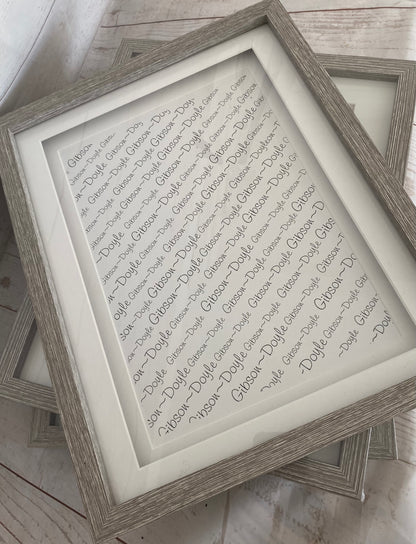 Gibson
~Doyle Gibson
~Doyle Gibson~Doy
~Doyle Gibson~Doyle Gibson
~Doyle Gibson~Doyle Gibson~Doy
~Doyle Gibson~Doyle Gibson~Doyle Gibson
Gibson~Doyle Gibson~Doyle Gibson~Doyle
Gibson~Doyle Gibson~Doyle Gibson~Doyle
Gibson~Doyle Gibson~Doyle Gibson~Doyle
Doyle Gibson~Doyle Gibson~Doyle Gibson
Doyle Gibson~Doyle Gibson~Doyle Gibson
~Doyle Gibson~Doyle Gibson~Doyle Gibson~D
~Doyle Gibson~Doyle Gibson~Doyle Gibson
Gibson~Doyle Gibson~Doyle Gibson~Doyle
Gibson~Doyle Gibson~Doyle Gib
Gibson~Doyle Gibson
Doyle Gibson~Doyle
~Doyle
~Dou